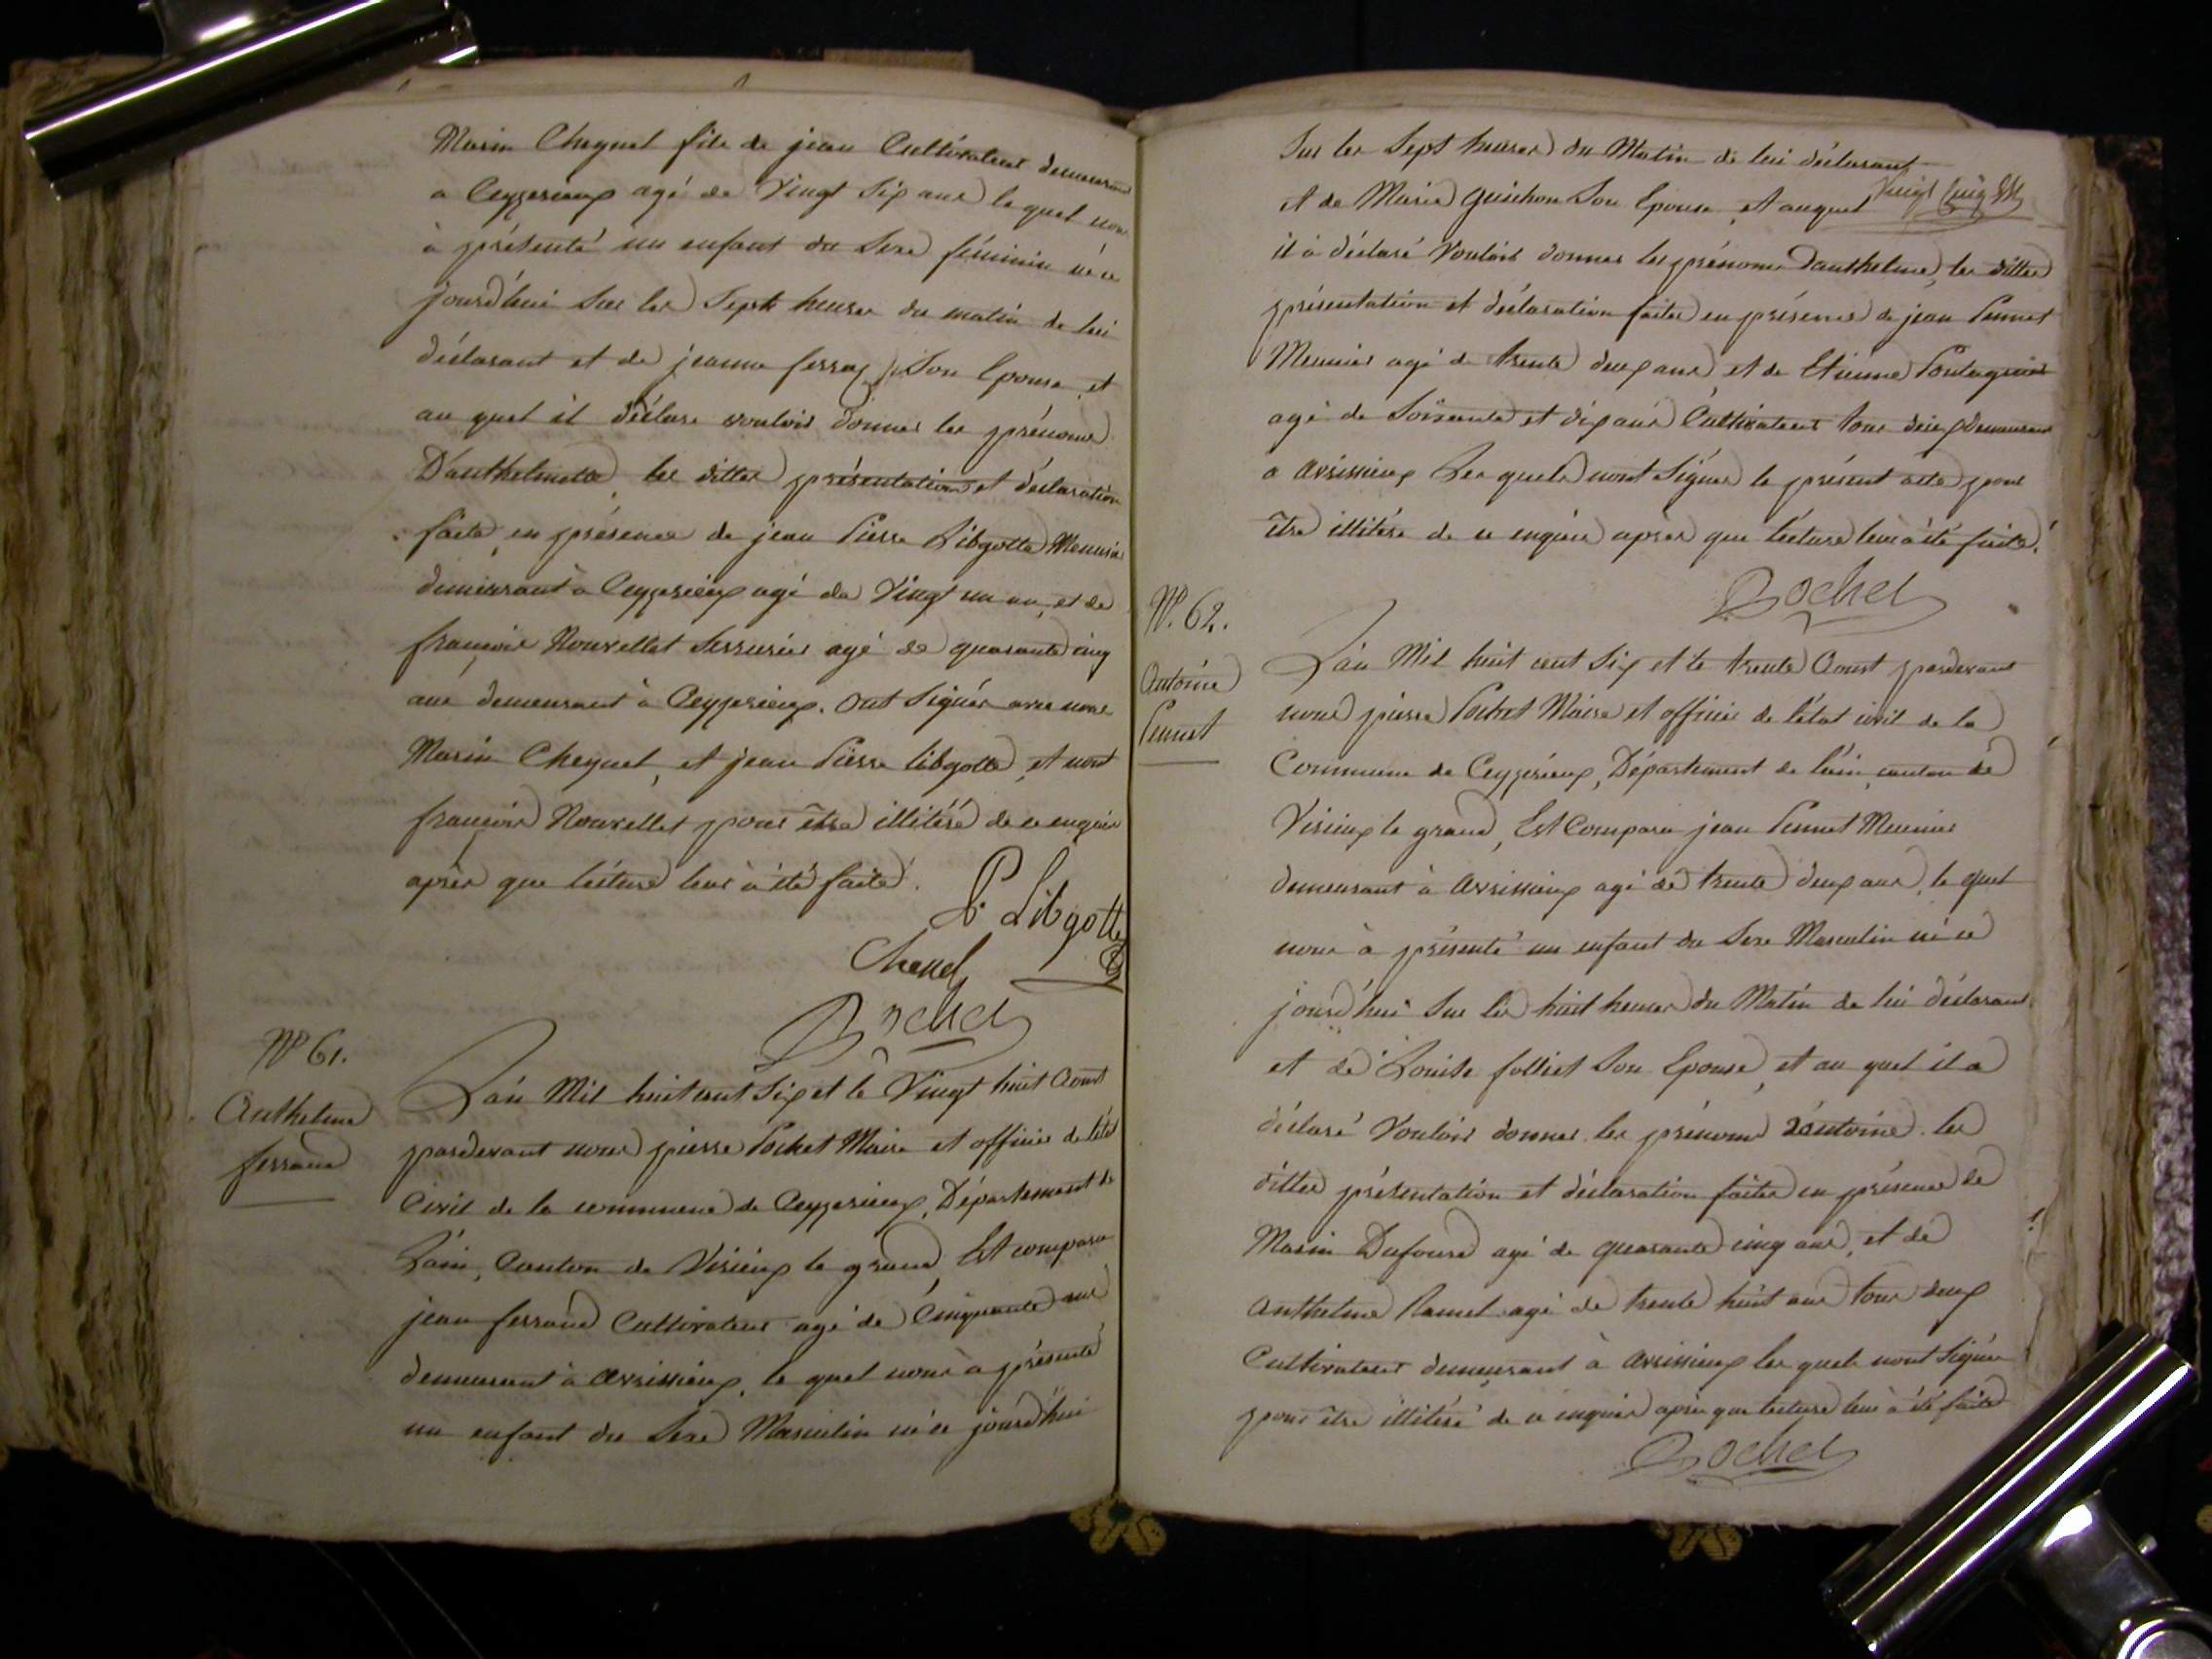 Marin Cheynel fils de jean Cultivateur demeurant
a Ceyzerieux agé de Vingt Six ans le quel nous
à présenté un enfant du Sexe féminin né ce
jourd'hui Sur les Sept heures du matin de lui
déclarant et de jeanne Son Epouse et
au quel il déclare vouloir donner les prénoms
D'anthelmette, les dittes présentation et déclaration
faite, en présence de jean Pierre Libgotte Menusié
demeurant à Ceyzerieux agé de Vingt un an, et de
françois Nouvellet Serrurier agé de quarante cinq
ans demeurant à Ceyzerieux. Ont Signés avec nous
Marin Cheynel, et jean Pierre libgotte, et nont
françois Nouvellet pour être illitéré de ce enquis
après que lécture leur à été faite.
P. Libgotte
Nº 61.
Anthelme
ferrand
L'an Mil huit cent Six et le Vingt huit Aoust
pardevant nous pierre Pochet Maire et officier de l'état
Civil de la commune de Ceyzerieux, Département de
L'ain, Canton de Virieux le grand, Est comparu
jean ferrand Cultivateur agé de Cinquante ans
demeurant à avrissieux, le quel nous à présenté
un enfant du Sexe Masculin né ce jourd'hui
Sur les Sept heures du Matin de lui déclarant
et de Marie guichon Son Epouse, et auquel
il à déclaré Vouloir donner les prénoms Danthelme, les dittes
présentation et déclaration faites en présence de jean Pennet
Meunier agé de trente deux ans, et de Etienne
agé de Soixante et dix ans Cultivateur tous deux demeurant
a avrissieux Les quels nont Signés le présent acte pour
être illitéré de ce enquis après que lécture leur à été faite.
Pochet
Nº. 62.
Antoine
Pennet
L'an Mil huit cent Six et le trente Aoust pardevant
nous pierre Pochet Maire et officier de l'état civil de la
Commune de Ceyzérieux, Département de l'ain, canton de
Virieux le grand, Est Comparu jean Pennet Meunier
demeurant à avrissieux agé de trente deux ans, le quel
nous à présenté un enfant du Sexe Masculin né ce
jourd'hui Sur les huit heures du Matin de lui déclarant
et de Louise folliet Son Epouse, et au quel il a
déclaré Vouloir donner les prénoms d'antoine. les
dittes présentation et déclaration faites en présence de
Marin Dufour agé de quarante cinq ans, et de
anthelme Ramel agé de trente huit ans tous deux
Cultivateur demeurant à avrissieux les quels nont Signés
pour être illitéré de ce enquis après que lecture leur à été faite
Pochet